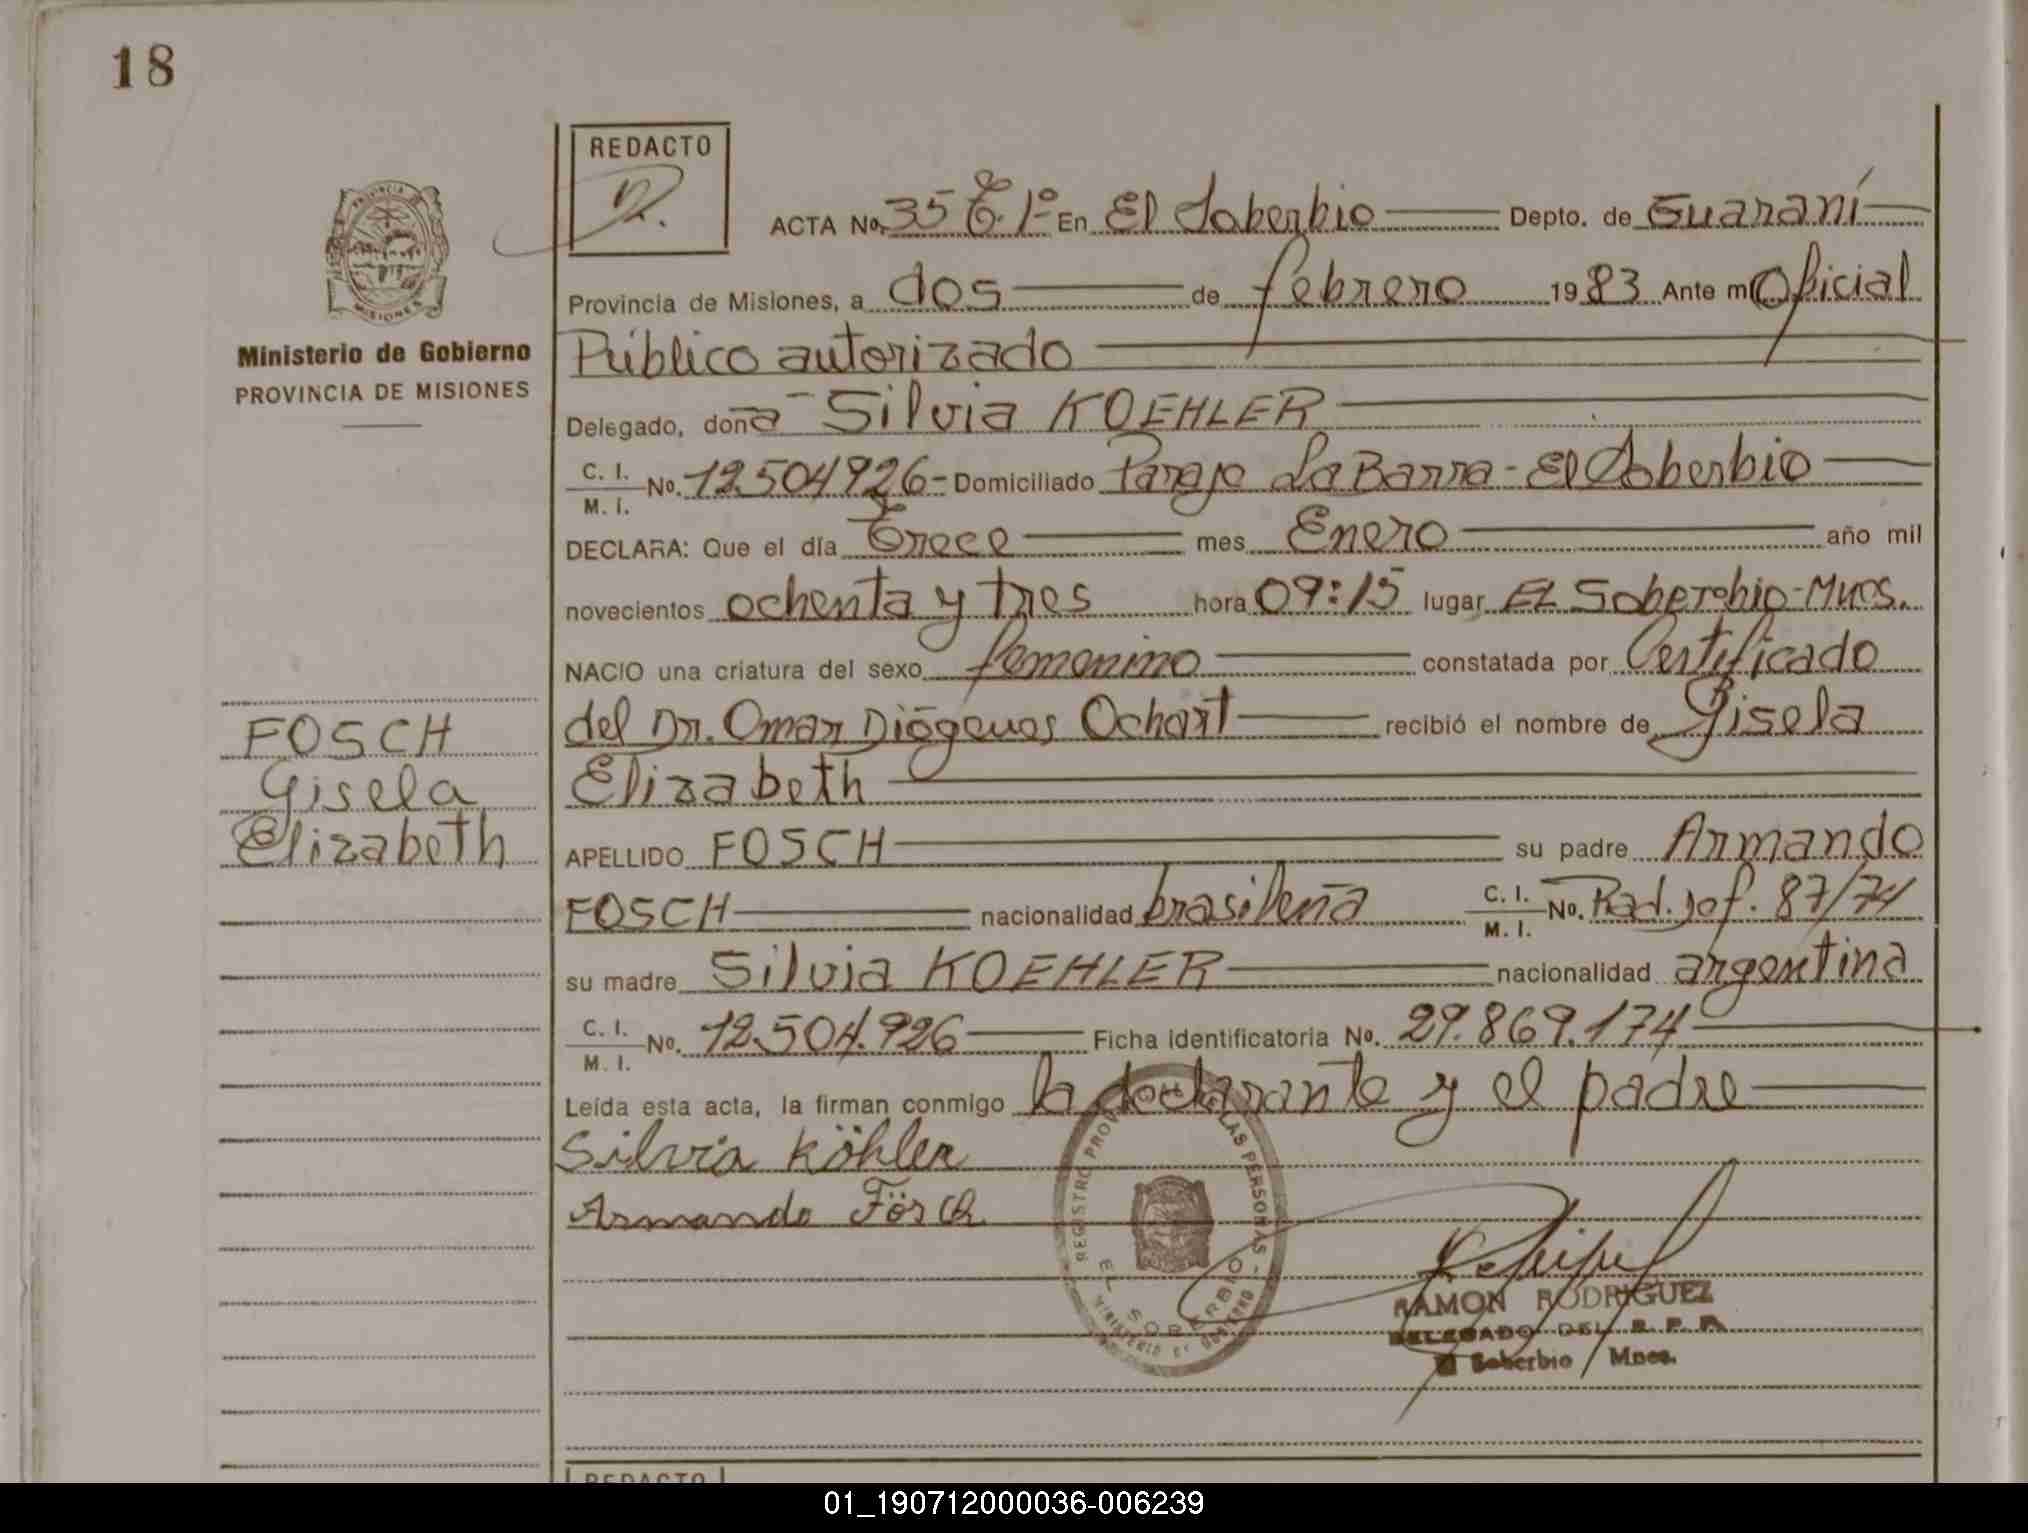 18
REDACTO
ACTA No. 35 T. 1º En El Soberbio Depto. de Guaraní
Provincia de Misiones, a dos de febrero 1983 Ante mí Oficial
Público autorizado
Ministerio de Gobierno
PROVINCIA DE MISIONES
Delegado, doña Silvia KOEHLER
C. I.
M. I. No. 12.504926- Domiciliado Paraje La Barra - El Soberbio
DECLARA: Que el día Trece mes Enero año mil
novecientos ochenta y tres hora 09:15 lugar EL Soberbio-Mnes.
NACIO una criatura del sexo femenino constatada por Certificado
del Dr. Omar Diógenes Ochart recibió el nombre de Gisela
Elizabeth
FOSCH
Gisela
Elizabeth
APELLIDO FOSCH su padre Armando
FOSCH nacionalidad brasileña C. I. M. I. No. Rad. Jef. 87/74
su madre Silvia KOEHLER nacionalidad argentina
C. I.
M. I. No. 12.504.926 Ficha identificatoria No. 29.869.174
Leída esta acta, la firman conmigo la declarante y el padre
Silvia Köhler
Armando Fösch
REGISTRO PROVINCIAL DE LAS PERSONAS
EL SOBERBIO
MINISTERIO DE GOBIERNO
RAMON RODRIGUEZ
DELEGADO DEL R. P. P.
El Soberbio / Mnes.
REDACTO
01_190712000036-006239